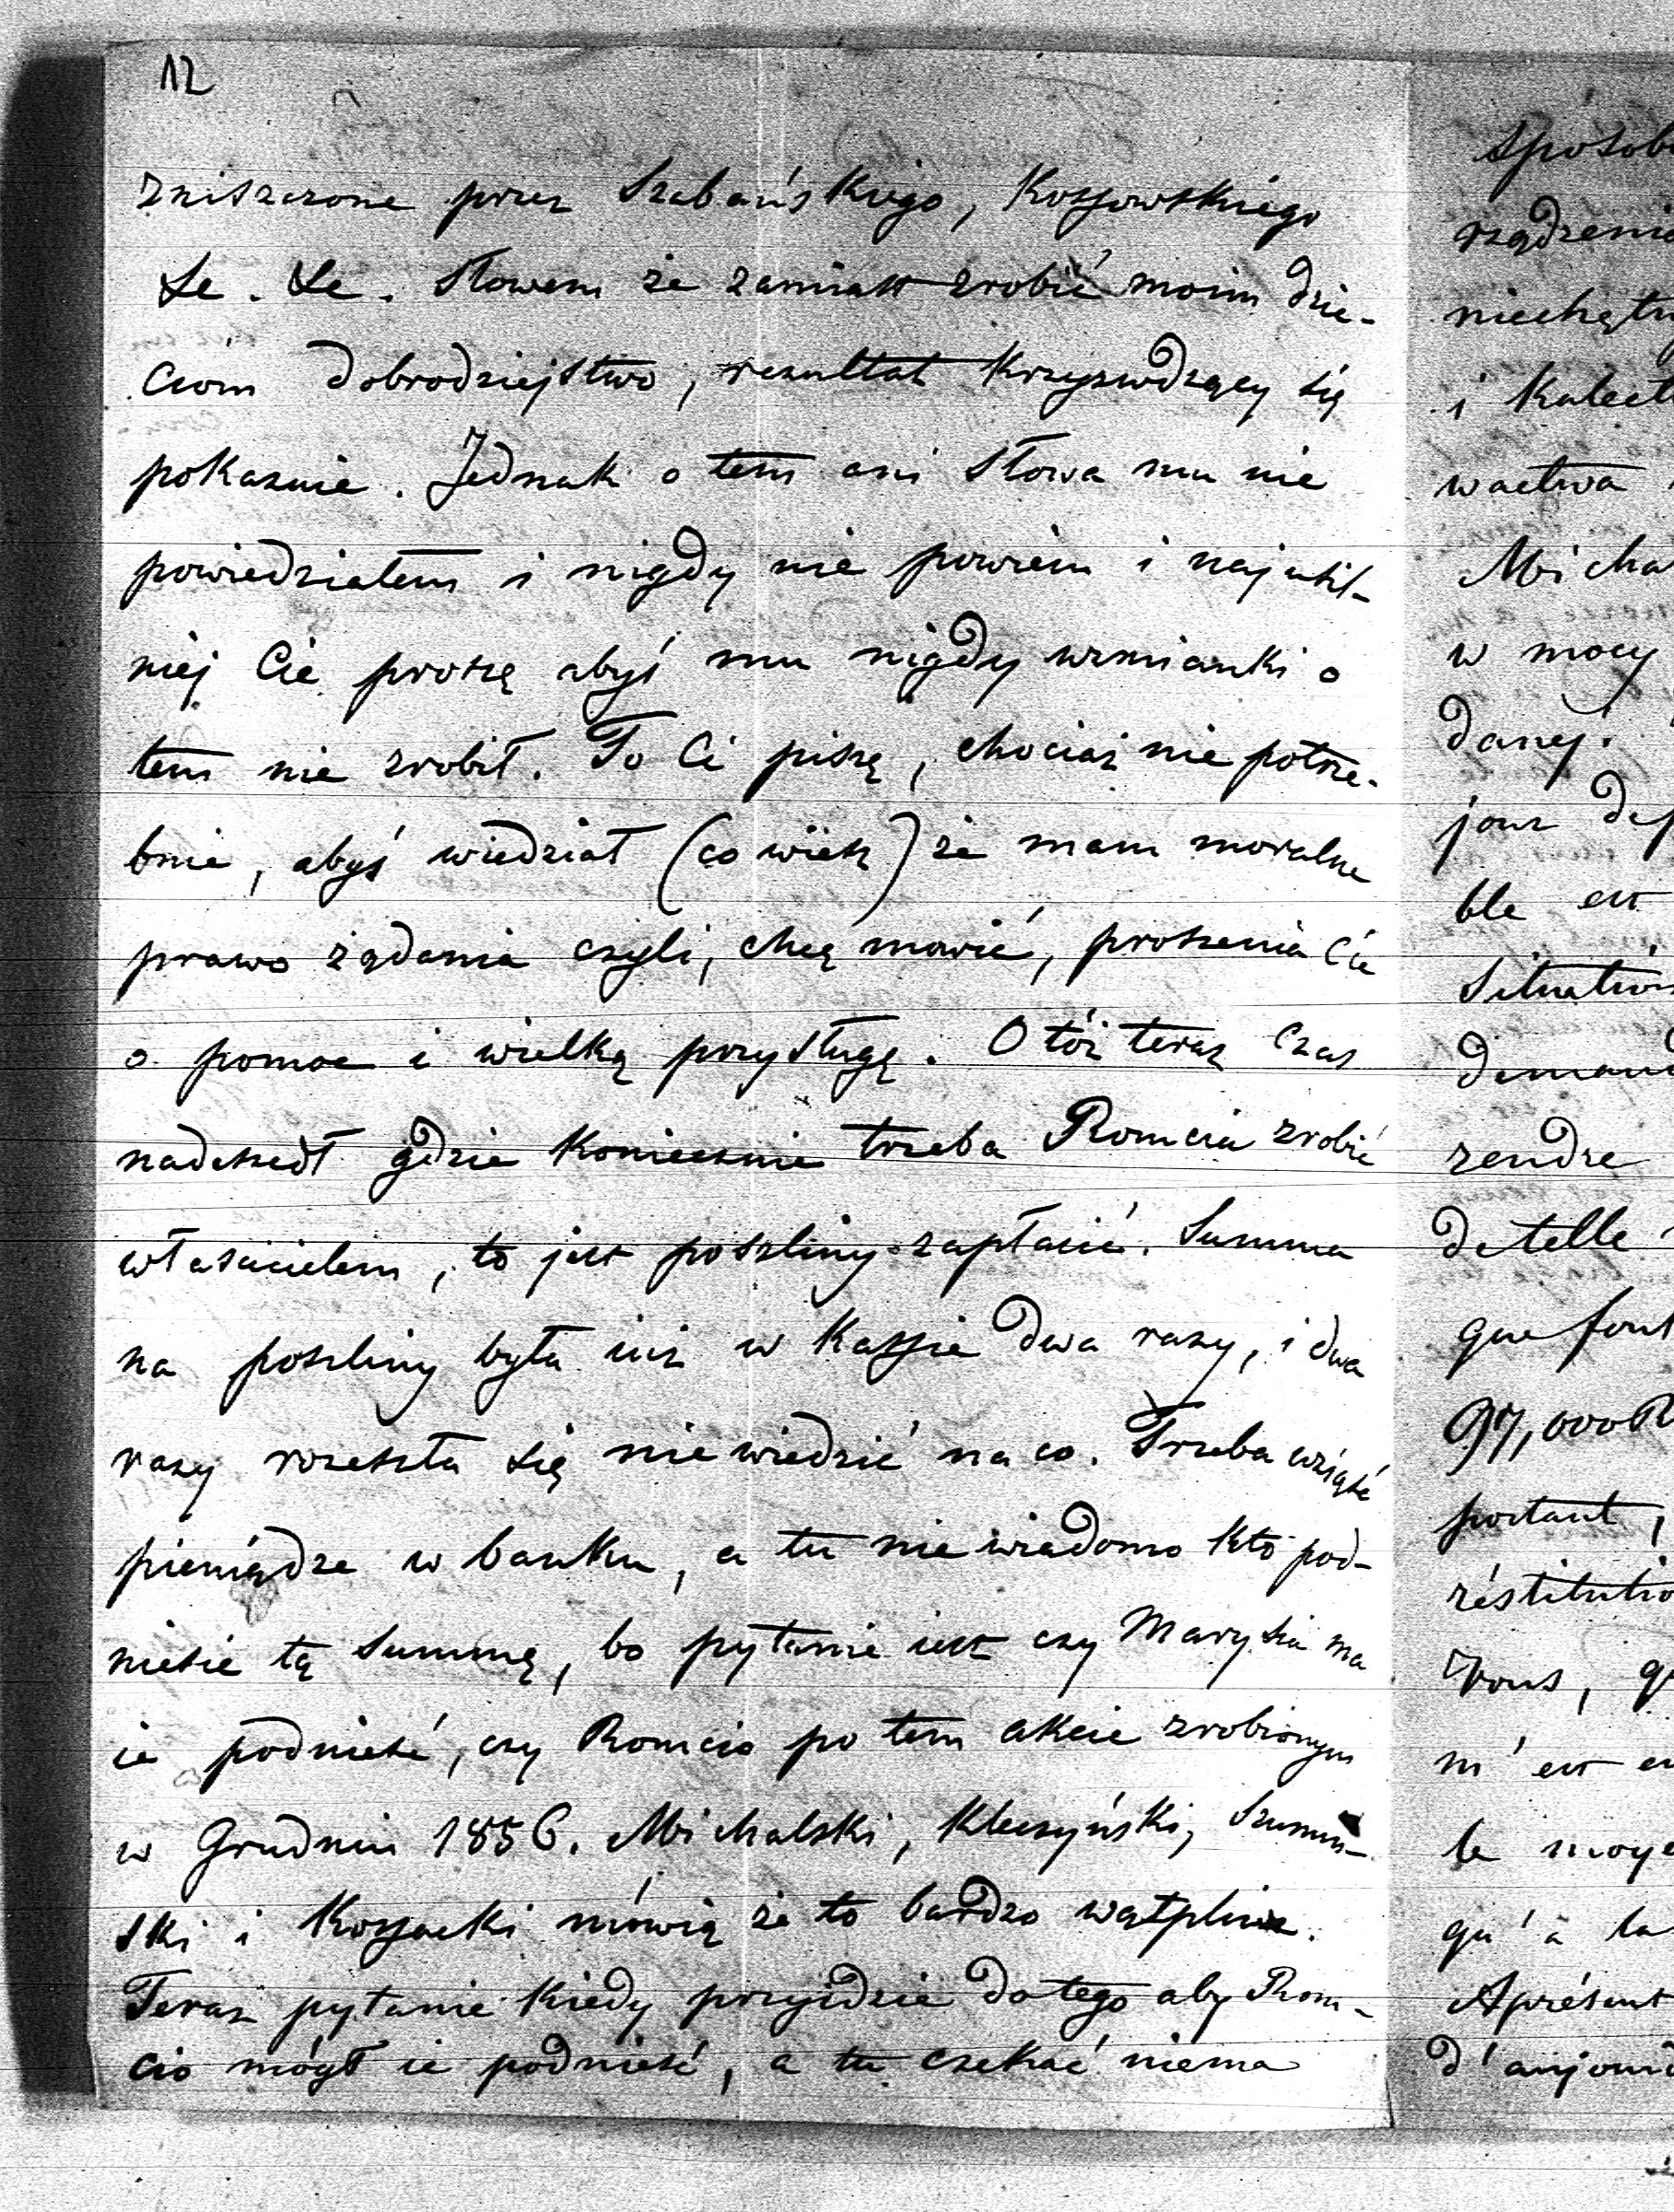 12
zniszczone przez Szabańskiego, Kossowskiego
&c. &c. Słowem że zamiast zrobić moim dzie-
ciom dobrodziejstwo, rezultat krzywdzący się
pokaznie. Jednak o tem ani słowa mu nie
powiedziałem i nigdy nie powiem i najusil-
niej Cie proszę abyś mu nigdy wzmianki o
tem nie zrobił. To Ci piszę, chociaż nie potrze-
bnie, abyś wiedział (co wiesz) że mam moralne
prawo żądania czyli, chcę mowić, proszenia Cie
o pomoc i wielką przysługę. Otóż teraz czas
nadszedł gdzie koniecznie trzeba Romcia zrobić
właścicielem, to jest poszliny zapłacić. Summa
na poszliny była iuż w Kassie dwa razy, i dwa
razy rozeszła się nie wiedzić na co. Trzeba wziąść
pieniądze w banku, a tu nie wiadomo kto pod-
niesie tą summę, bo pytanie iest czy Marysia ma
ie podnieść, czy Romcio po tem akcie zrobionym
w Grudniu 1856. Michalski, Kleczyński, Szumiń-
ski i Kossacki mówią że to bardzo wątpliwe.
Teraz pytanie kiedy przyidzie do tego aby Rom-
cio mógł ie podnieść, a tu czekać niema
sposob
rządzenia
niechętn
i kalect
wactwa
Micha
w mocy
daney.
jour dep
ble est
situation
demand
rendre
de telle
que font
97,000 R
portant,
réstitutio
vous, q
m'est en
le moye
qu'à la
Aprésent
d'aujourd